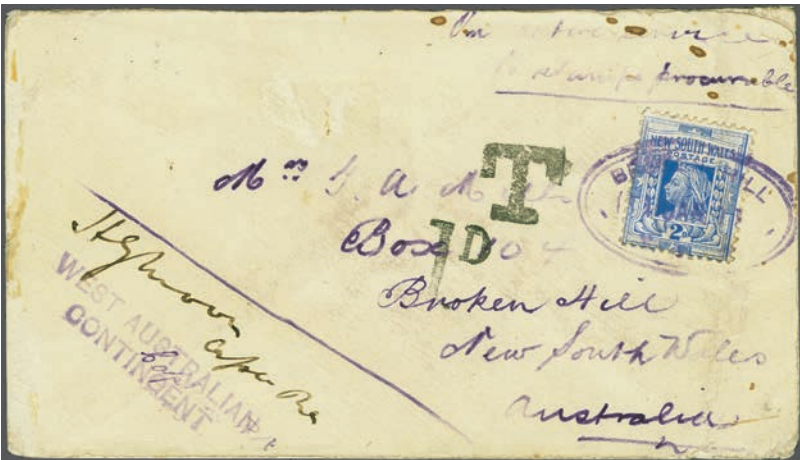 On active service
No stamps procurable
NEW SOUTH WALES
POSTAGE
2D
BROKEN HILL
T
1D
Mrs G. A. M
Box 104
Broken Hill
New South Wales
Australia
WEST AUSTRALIAN
CONTINGENT